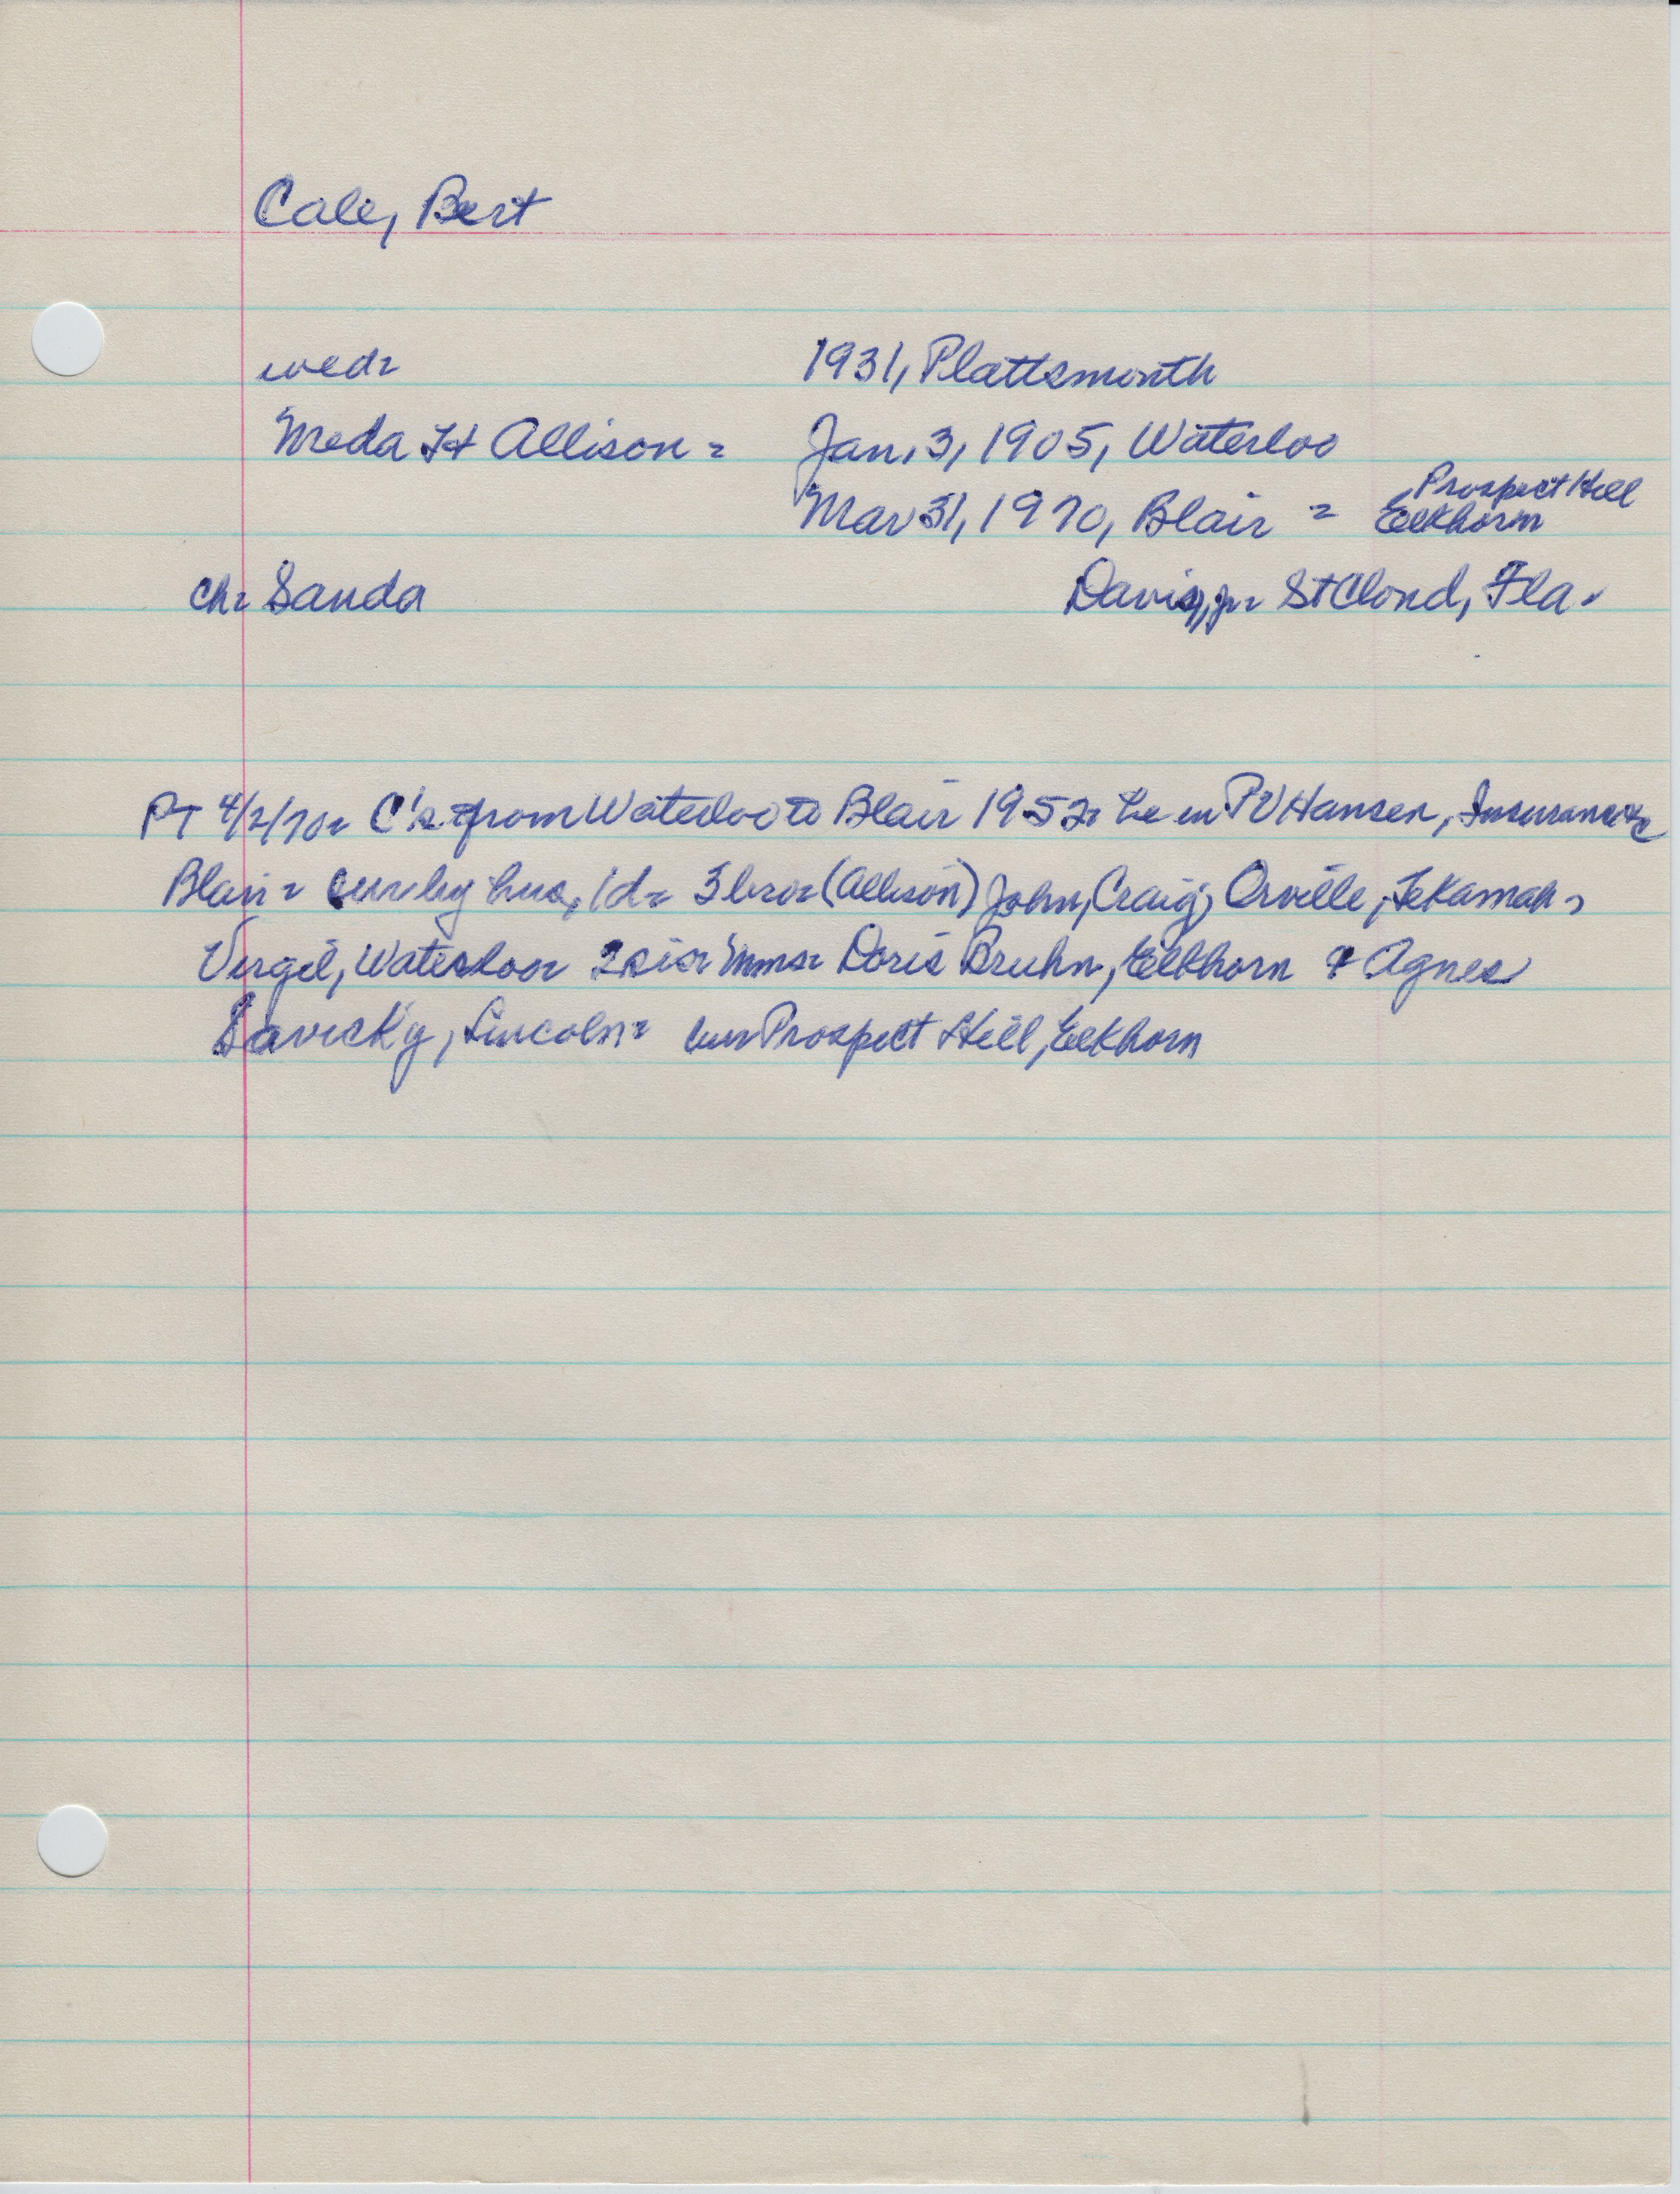 Cale, Bert
wed= 1931, Plattsmouth
Meda H Allison = Jan. 3, 1905, Waterloo
Mar 31, 1970, Blair = Prospect Hill
Elkhorn
ch= Sanda Davis, jr= St Cloud, Fla.
PT 4/2/70= C's from Waterloo to Blair 1952= he in PV Hansen, Insurance
Blair= sur by hus, 1d= 3 bro= (Allison) John, Craig; Orville, Tekamah =
Vergil, Waterloo= 2 sis= Mms= Doris Bruhn, Elkhorn & Agnes
Savicky, Lincoln= bur Prospect Hill, Elkhorn